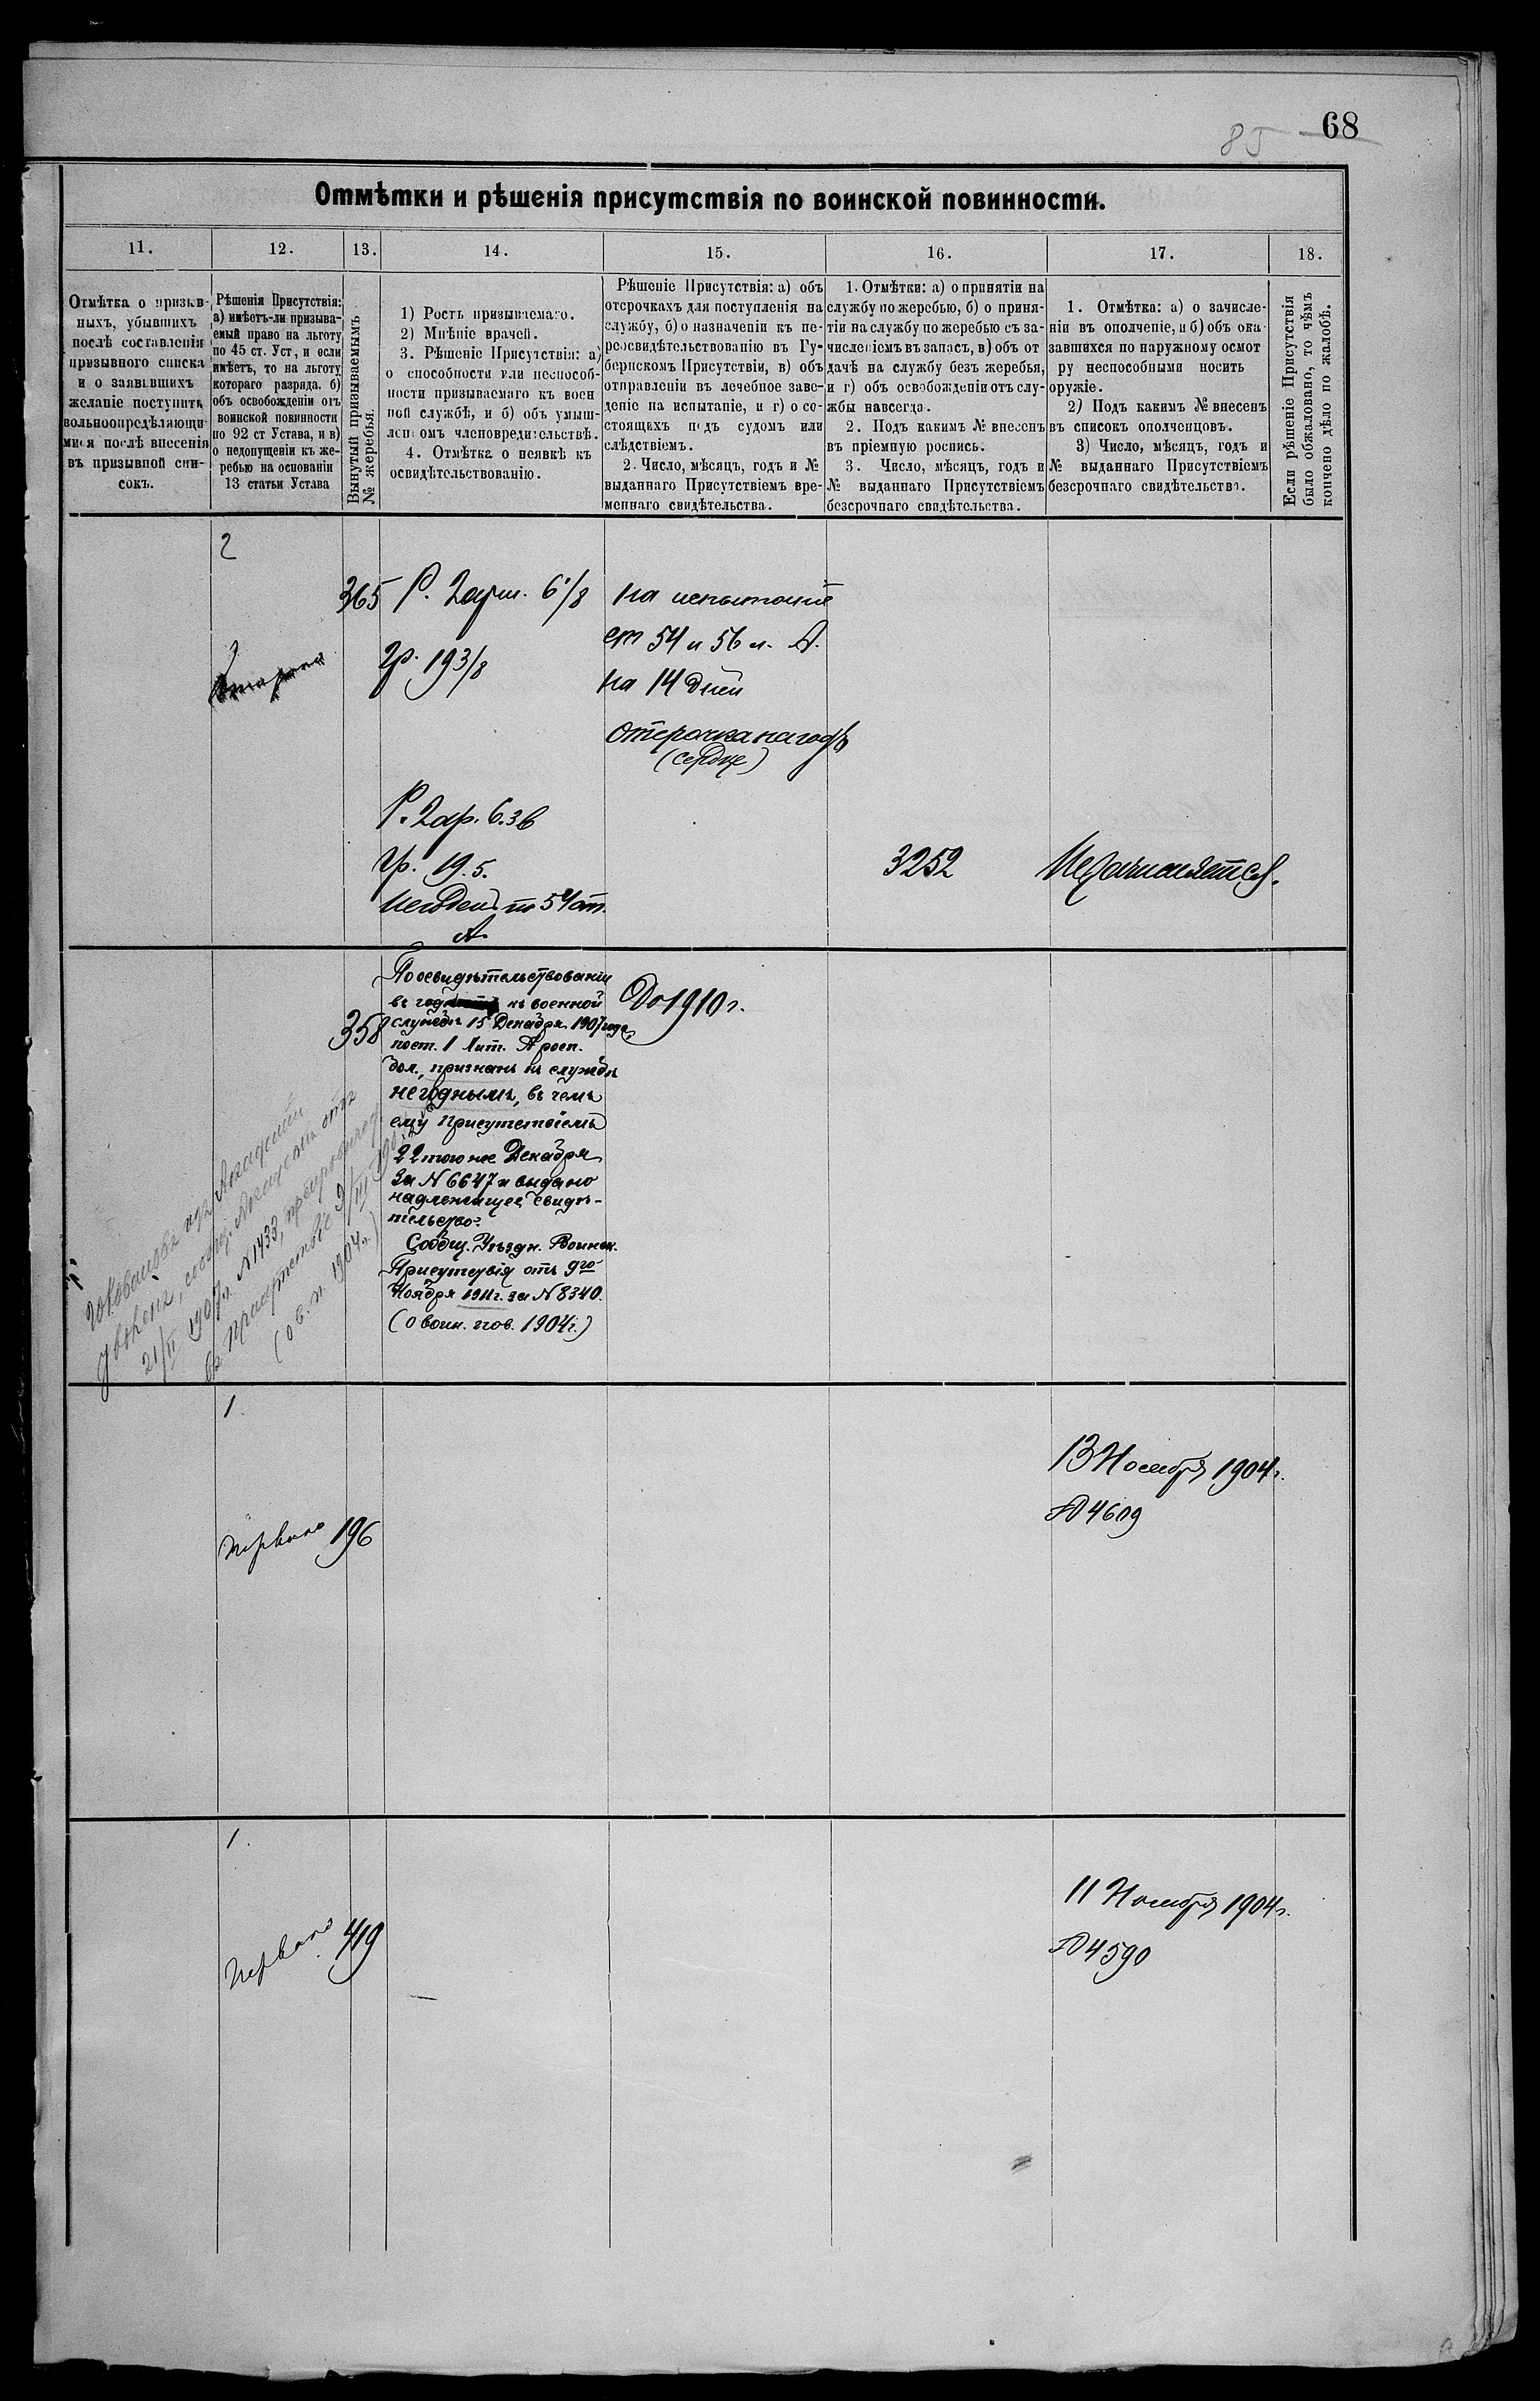 85 68
Отмѣтки и рѣшенія присутствія по воинской повинности.
11.
12.
13.
14.
15.
16.
17.
18.
Отмѣтка о призыв-
ныхъ, убывшихъ
послѣ составленія
призывного списка
и о заявившихъ
желаніе поступить
вольноопредѣляющи
мися послѣ внесенія
въ призывной спи-
сокъ.
Рѣшенія Присутствія:
а) имѣетъ-ли призыва-
емый право на льготу
по 45 ст. Уст, и если
имѣетъ, то на льготу
котораго разряда. б)
объ освобожденіи отъ
воинской повинности
по 92 ст Устава, и в)
о недопущеніи къ же-
ребью на основаніи
13 статьи Устава
Вынутый призываемымъ
№ жеребья.
1) Ростъ призываемаго.
2) Мнѣніе врачей.
3. Рѣшеніе Присутствія: а)
о способности или неспособ-
ности призываемаго къ воен
ной службѣ, и б) объ умыш-
леномъ членовредительствѣ.
4. Отмѣтка о неявкѣ къ
освидѣтельствованію.
Рѣшеніе Присутствія: а) объ
отсрочкахъ для поступленія на
службу, б) о назначеніи къ пе-
реосвидѣтельствованію въ Гу-
бернскомъ Присутствіи, в) объ
отправленіи въ лечебное заве-
деніе на испытаніе, и г) о со-
стоящахъ подъ судомъ или
слѣдствіемъ.
2. Число, мѣсяцъ, годъ и №
выданнаго Присутствіемъ вре-
меннаго свидѣтельства.
1. Отмѣтки: а) о принятіи на
службу по жеребью, б) о приня-
тіи на службу по жеребью съ за-
численіемъ въ запасъ, в) объ от
дачѣ на службу безъ жеребья,
и г) объ освобожденіи отъ слу-
жбы навсегда.
2. Подъ какимъ № внесенъ
въ пріемную роспись.
3. Число, мѣсяцъ, годъ и
№ выданнаго Присутствіемъ
безсрочнаго свидѣтельства.
1. Отмѣтка: а) о зачисле-
ніи въ ополченіе, и б) объ ока-
завшихся по наружному осмот
ру неспособными носить
оружіе.
2) Подъ какимъ № внесенъ
въ списокъ ополченцовъ.
3) Число, мѣсяцъ, годъ и
№ выданнаго Присутствіемъ
безсрочнаго свидѣтельства.
Если рѣшеніе Присутствія
было обжаловано, то чѣмъ
кончено дѣло по жалобѣ.
2
365 Р. 2 арш. 6 1/8
гр. 19 3/8
на испытаніе
ст 54 и 56 л. А.
на 14 дней
Отсрочка на годъ
(сердце)
Р. 2 ар. 6.3 в
гр. 19.5.
Негоденъ по 54 ст.
А
3252
Не зачисляется.
358
По освидѣтельствованіи
въ къ военной
службѣ 15 Декабря 1907 года
пост. 1 Лит. А росп.
бол., признанъ къ службѣ
негоднымъ, въ чемъ
ему Присутствіемъ
22 того же Декабря
за N 6647 и выдано
надлежащее свидѣ-
тельство.
Сообщ. Уѣздн. Воинск.
Присутствія отъ 9го
Ноября 1911 г. за N 8340.
(о воин. пов. 1904 г.)
До 1910 г.
изъ Академіи
21/II 1907 г. N 1433,
въ Присутствіе 9/III
(о в. п. 1904 г.)
1
перваго 196
13 Ноября 1904 г.
№ 4609
1.
перваго 419
11 Ноября 1904 г.
№ 4590